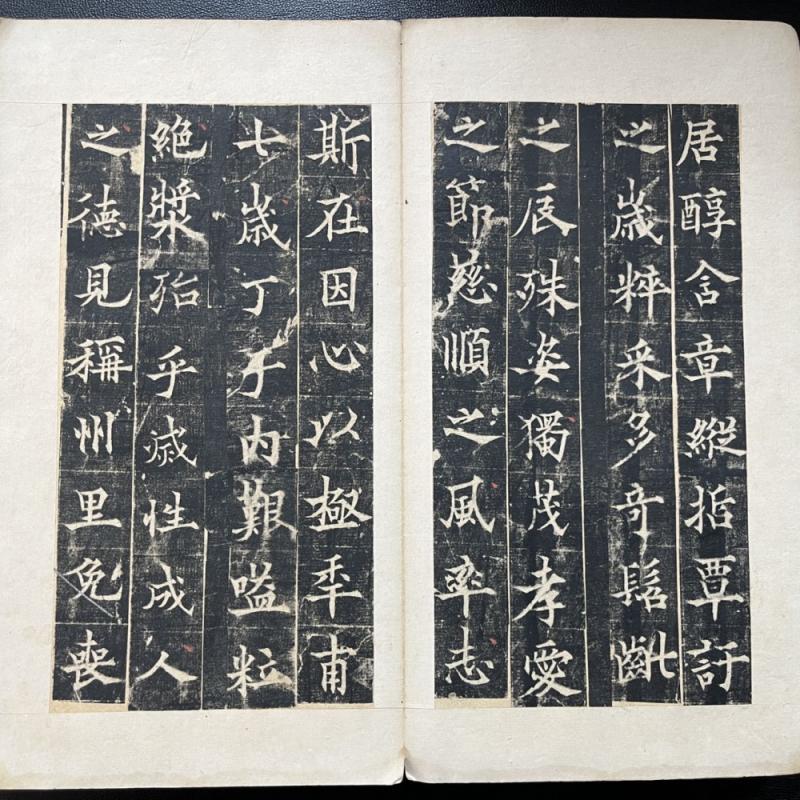 居醇含章縱括覃訏
之歲粹采多奇髫齔
之辰殊姿獨茂孝愛
之節慈順之風率志
斯在因心以極年甫
七歲丁于内艱嗌粒
絶漿殆乎滅性成人
之德見稱州里免喪